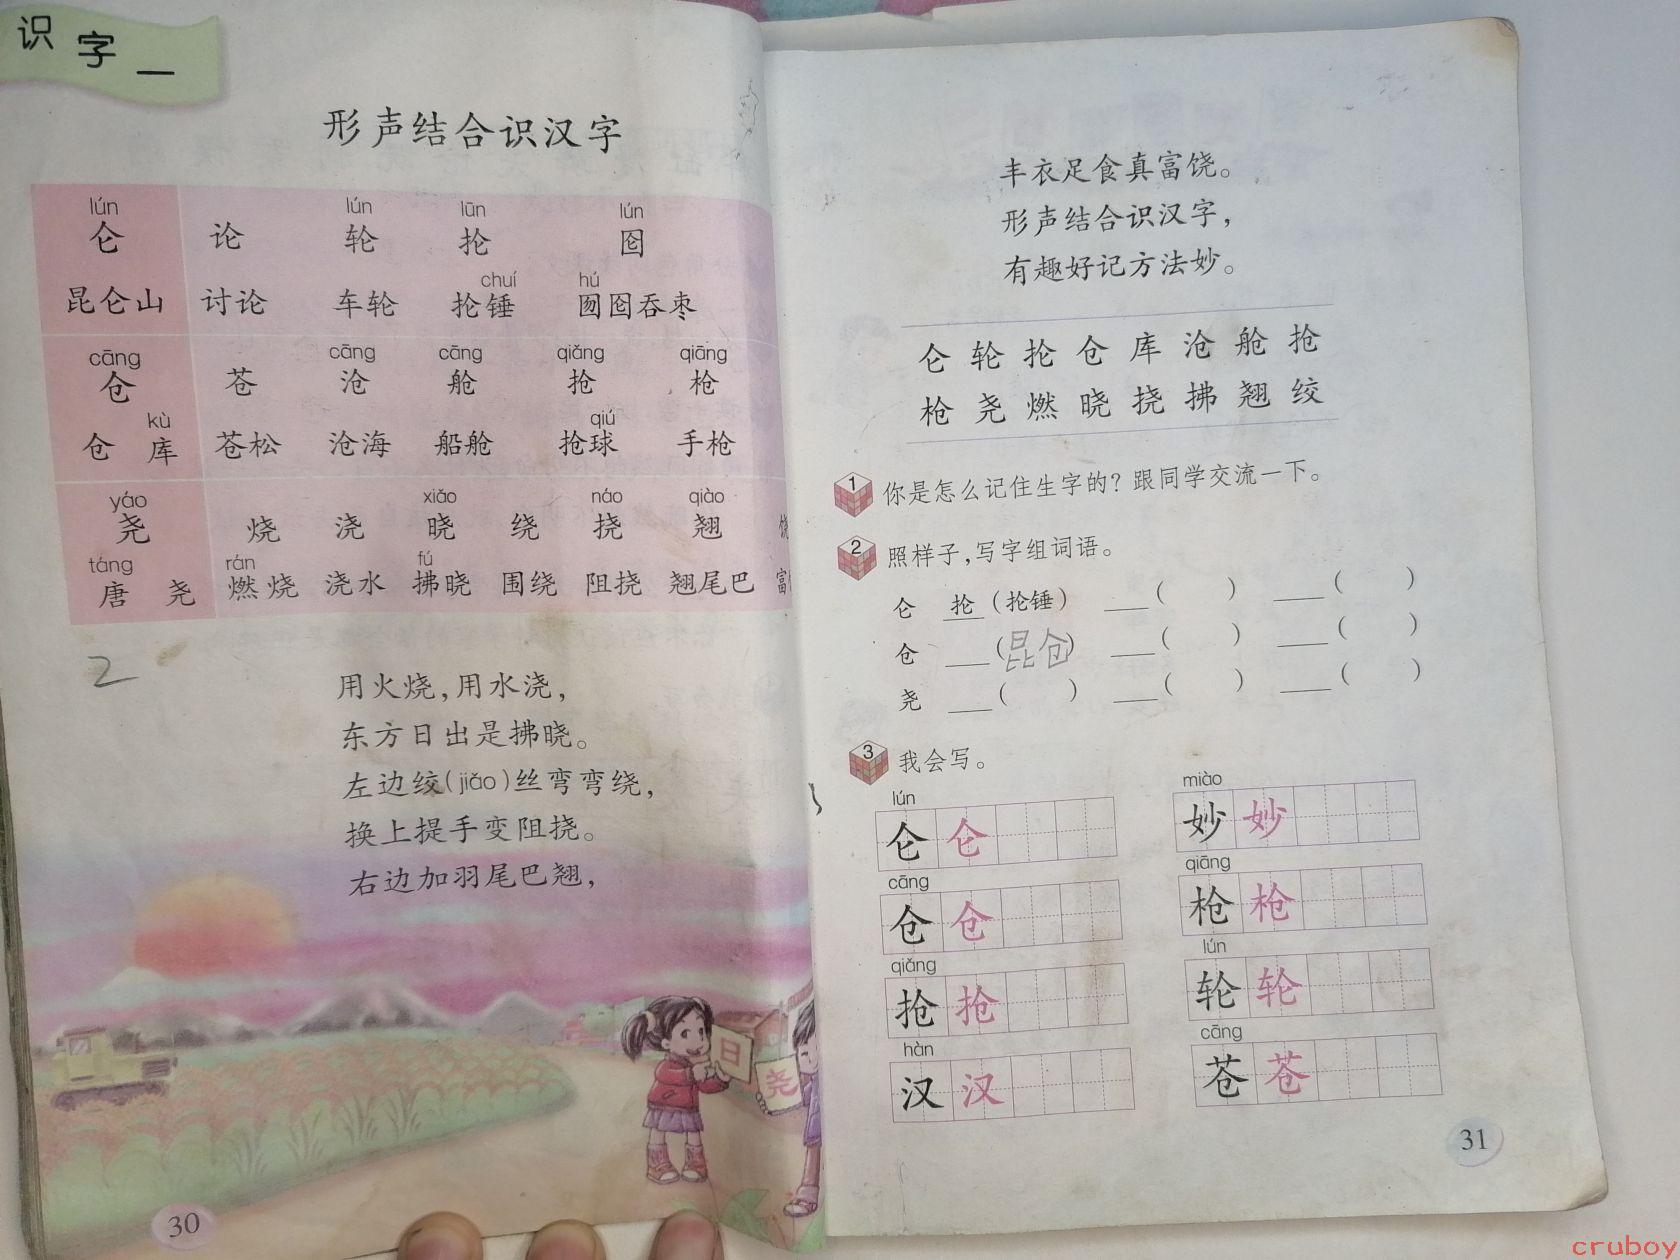 识字一
形声结合识汉字
lún lún lūn lún
仑 论 轮 抡 囵
chuí hú
昆仑山 讨论 车轮 抡锤 囫囵吞枣
cāng cāng cāng qiǎng qiāng
仓 苍 沧 舱 抢 枪
kù qiú
仓 库 苍松 沧海 船舱 抢球 手枪
yáo xiǎo náo qiào
尧 烧 浇 晓 绕 挠 翘
táng rán fú
唐 尧 燃烧 浇水 拂晓 围绕 阻挠 翘尾巴 富
2
用火烧,用水浇,
东方日出是拂晓。
左边绞(jiǎo)丝弯弯绕,
换上提手变阻挠。
右边加羽尾巴翘,
日
尧
30
丰衣足食真富饶。
形声结合识汉字,
有趣好记方法妙。
仑 轮 抡 仓 库 沧 舱 抢
枪 尧 燃 晓 挠 拂 翘 绞
1 你是怎么记住生字的?跟同学交流一下。
2 照样子,写字组词语。
仑 抡 (抡锤) ___( ) ___( )
仓 ___(昆仓) ___( ) ___( )
尧 ___( ) ___( ) ___( )
3 我会写。
lún miào
仑 仑 妙 妙
cāng qiāng
仓 仓 枪 枪
qiǎng lún
抢 抢 轮 轮
hàn cāng
汉 汉 苍 苍
31
cruboy